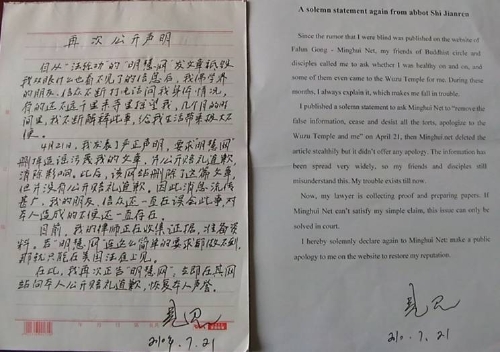 再次公开声明
自从“法轮功”的“明慧网”发文章诋毁
我双眼什么也看不见了的信息后，我佛学界
的朋友、信众不断打电话问我身体情况，
有的还不远千里来寺里探望我，几个月的时
间里，我不断解释此事，给我生活带来极大不
便。
4月21日，我发表了严正声明，要求“明慧网”
删掉造谣污蔑我的文章，并公开赔礼道歉，
消除影响。此后，该网站删除了这篇文章，
但并没有公开赔礼道歉。因此消息流传
甚广，我的朋友、信众还一直在误会此事，对
本人造成的不便还一直存在。
目前，我的律师正在收集证据、准备资
料。若“明慧网”连这么简单的要求都做不到，
那就只能在美国法庭上见。
在此，我再次正告“明慧网”，立即在其网
站向本人公开赔礼道歉，恢复本人声誉。
2010.7.21
A solemn statement again from abbot Shi Jianren
Since the rumor that I were blind was published on the website of
Falun Gong - Minghui Net, my friends of Buddhism circle and
disciples called me to ask whether I was healthy on and on, and
some of them even came to the Wuzu Temple for me. During these
months, I always explain it, which makes me fall in trouble.
I published a solemn statement to ask Minghui Net to “remove the
false information, cease and desist all the torts, apologize to the
Wuzu Temple and me” on April 21, then Minghui net deleted the
article stealthily but it didn't offer any apology. The information has
been spread very widely, so my friends and disciples still
misunderstand this. My trouble exists till now.
Now, my lawyer is collecting proof and preparing papers. If
Minghui Net can't satisfy my simple claim, this issue can only be
solved in court.
I hereby solemnly declare again to Minghui Net: make a public
apology to me on the website to restore my reputation.
2010.7.21